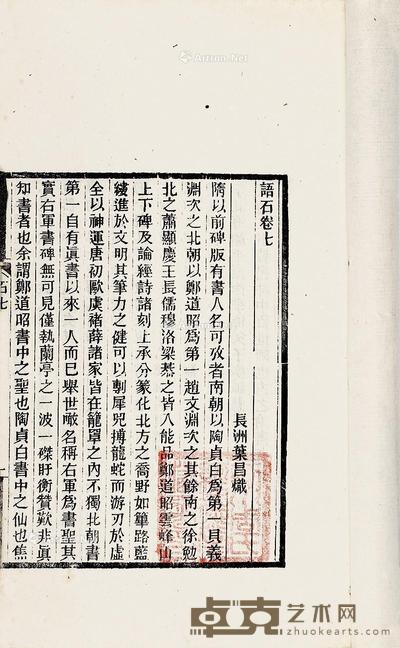 語石卷七
長洲葉昌熾
隋以前碑版有書人名可攷者南朝以陶貞白爲第一貝義
淵次之北朝以鄭道昭爲第一趙文淵次之其餘南之徐勉
北之蕭顯慶王長儒穆洛梁恭之皆入能品鄭道昭雲峰山
上下碑及論經詩諸刻上承分篆化北方之喬野如篳路藍
縷進於文明其筆力之健可以剸犀兕搏龍蛇而游刃於虛
全以神運唐初歐虞褚薛諸家皆在籠罩之內不獨北朝書
第一自有眞書以來一人而已舉世噉名稱右軍爲書聖其
實右軍書碑無可見僅執蘭亭之一波一磔盱衡贊歎非眞
知書者也余謂鄭道昭書中之聖也陶貞白書中之仙也焦
石七
Artron.Net
卓克艺术网
zhuokearts.com